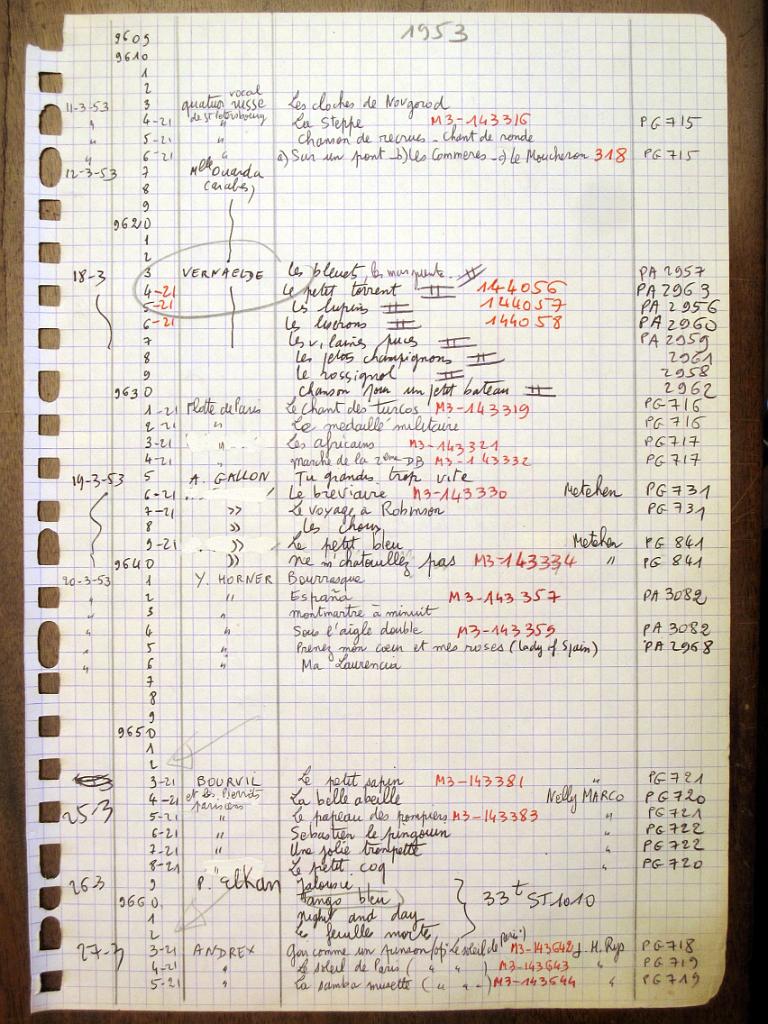 1953
9609
9610
1
2
11-3-53 3 quatuor vocal russe de St Petersbourg Les cloches de Novgorod
" 4-21 " La Steppe M3-143316 PG 715
" 5-21 " Chanson de recrues - Chant de ronde
" 6-21 " a) Sur un pont - b) Les Commeres - c) Le Moucheron 318 PG 715
12-3-53 7 Melle Ouarda
8 (arabes)
9
9620
1
2
18-3 3 VERNAELDE Les bleuets, PA 2957
4-21 Le petit torrent 144056 PA 2963
5-21 Les lupins 144057 PA 2956
6-21 Les liserons 144058 PA 2960
7 Les vilaines puces PA 2959
8 Les petits champignons 2961
9 Le rossignol 2958
9630 Chanson pour un petit bateau 2962
1-21 Flotte de Paris Le chant des turcos M3-143319 PG 716
2-21 " La medaille militaire PG 716
3-21 " Les africains M3-143321 PG 717
4-21 " Marche de la 2eme DB M3-143332 PG 717
19-3-53 5 A. GALLON Tu grandis trop vite
6-21 Le breviaire M3-143330 Metehen PG 731
7-21 » Le voyage à Robinson PG 731
8 » Les choux
9-21 » Le petit bleu Metehen PG 841
9640 » Ne m'chatouillez pas M3-143334 " PG 841
20-3-53 1 Y. HORNER Bourrasque
" 2 " España M3-143357 PA 3082
" 3 " Montmartre à minuit
" 4 " Sous l'aigle double M3-143359 PA 3082
" 5 " Prenez mon coeur et mes roses (Lady of Spain) PA 2968
" 6 " Ma Laurencia
7
8
9
9650
1
2
3-21 BOURVIL Le petit sapin M3-143381 " PG 721
4-21 et les Pierrots parisiens La belle abeille Nelly MARCO PG 720
25-3 5-21 " Le papeau des pompiers M3-143383 " PG 721
6-21 " Sebastien le pingouin " PG 722
7-21 " Une jolie trompette " PG 722
8-21 " Le petit coq " PG 720
26 3 9 P. Elkan Jalousie
9660 Tango bleu 33t ST 1010
1 Night and day
2 Les feuilles mortes
27-3 3-21 ANDREX Gai comme un pinson (op: Le soleil de Paris) M3-143642 J. H. Rys PG 718
4-21 " Le soleil de Paris ( " " ) M3-143643 " PG 719
5-21 " La samba musette ( " " ) M3-143644 " PG 719